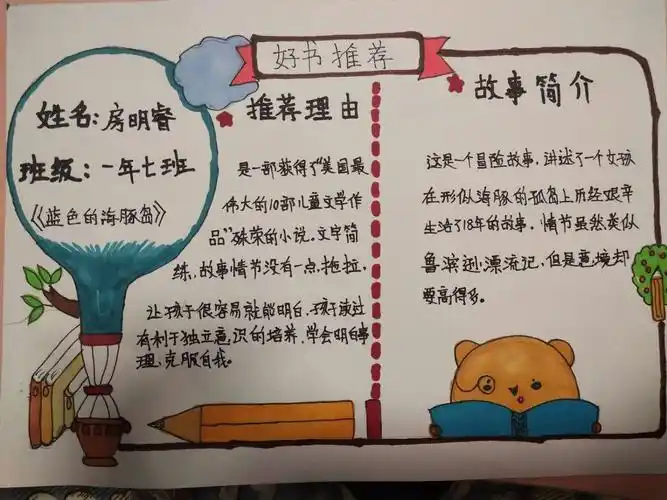 好书推荐
姓名:房明睿
班级:一年七班
《蓝色的海豚岛》
推荐理由
是一部获得了"美国最
伟大的10部儿童文学作
品"殊荣的小说。文字简
练,故事情节没有一点,拖拉,
让孩子很容易就能明白,孩子读过
有利于独立意识的培养,学会明白事
理,克服自我。
故事简介
这是一个冒险故事,讲述了一个女孩
在形似海豚的孤岛上历经艰辛
生活了18年的故事。情节虽然类似
鲁滨逊漂流记,但是意境却
要高得多。